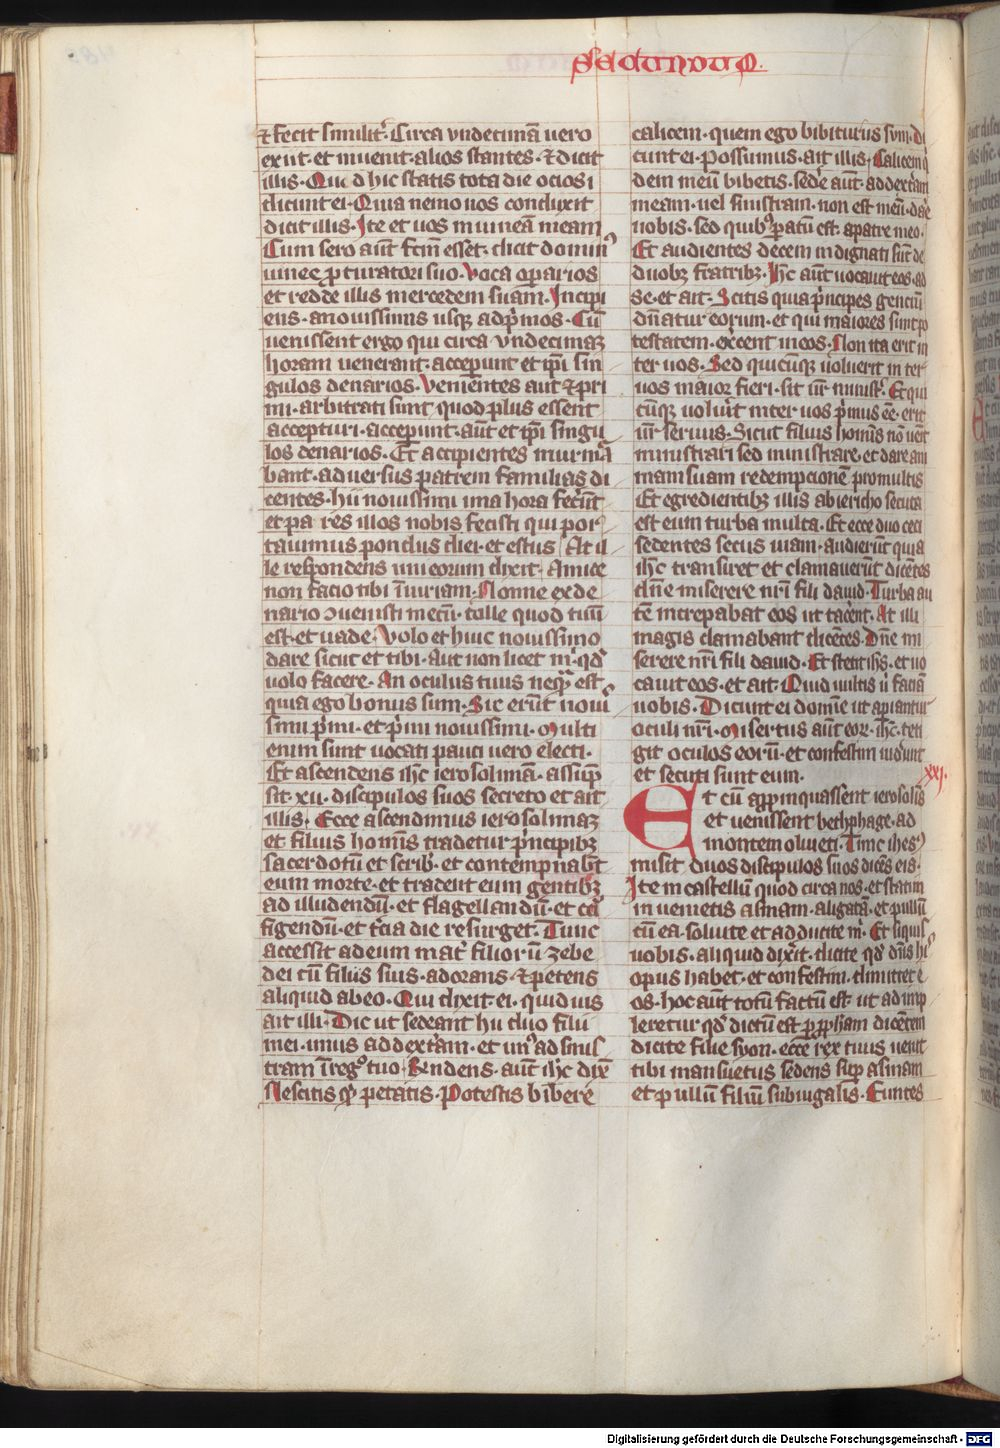 secundum.
⁊ fecit similit᷑. Circa vndecimā uero
exiit. et inuenit. alios stantes. ⁊ dicit
illis. Quid hic statis tota die ociosi
dicunt ei. Quia nemo nos conduxit
dicit illis. Ite et uos in uineā meam
Cum sero aut̄ fc̄m esset. dicit domin⁹
uinee p̱curatori suo. Voca op̱arios
et redde illis mercedem suam. Incipi
ens. a nouissimis usqꝫ ad p̓mos. Cū
uenissent ergo qui circa vndecimaꝫ
horam uenerant. accep̱unt et ip̄i sin
gulos denarios. Venientes aut̄ ⁊ pri
mi. arbitrati sunt quod plus essent
accepturi. accep̱unt. aut̄ et ip̄i singu
los denarios. Et accipientes murmᷓa
bant. aduersus patrem familias di
centes. hii nouissimi una hora fecer̄ūt
et pares illos nobis fecisti qui por
tauimus pondus diei. et estus. At il
le respondens uni eorum dixit. Amice
non facio tibi iniuriam. Nonne ex de
nario ꝯuenisti mecū. tolle quod tuū
est. et uade. Volo et huic nouissimo
dare sicut et tibi. Aut non licet m̓. qd̓
uolo facere. An oculus tuus neqᷓ est.
quia ego bonus sum. Sic erūt noui
simi p̓mi. et p̓mi nouissimi. Multi
enim sunt uocati pauci uero electi.
Et ascendens ih̄c ierosolimā. assūp
sit. xii. discipulos suos secreto et ait
illis. Ecce ascendimus ierosolimaꝫ
et filius homīs tradetur p̓ncipibꝫ
sacerdotū et scrib᷑. et contempnab̄t
eum morte. et tradent eum gentibꝫ
ad illudendū. et flagellandū. et cᷓci
figendū. et t̓cia die resurget. Tunc
accessit ad eum mat᷑ filiorū zebe
dei cū filiis suis. adorans. ⁊ petens
aliquid ab eo. Qui dixit ei. quid uis
ait illi. Dic ut sedeant hii duo filii
mei. unus ad dext᷑am. et un⁹ ad sinis
tram ī reg⁰ tuo. Rn̄dens. aut̄ ih̄c dix̄
Nescitis qͥ petatis. Potestis bibere
calicem. quem ego bibiturus sum. Di
cunt ei. possumus. ait illis. Calicem q̓
dem meū bibetis. sed̓e aut̄. ad dext᷑am
meam. uel sinistram. non est meū. da̓e
uobis. sed quib⁹ p̱atū est. a patre meo.
Et audientes decem indignati sūt de
duobꝫ fratribꝫ. Ih̄c aut̄ uocauit eos. ad
se. et ait. Scitis quia p̓ncipes genciū
dn̄atur eorum. et qui maiores sunt po
testatem. ex̓cent in eos. Non ita erit in
ter uos. Sed quicūqꝫ uoluerit inter
uos maior fieri. sit ur̄ minist᷑. Et qui
cūqꝫ uolu̓it inter uos p̓mus eē. erit
ur̄ seruus. Sicut filius homīs nō uenit
ministrari sed ministrare. et dare ani
mam suam redempcionē pro multis
Et egredientibꝫ illis ab iericho secuta
est eum turba multa. Et ecce duo ceci
sedentes secus uiam. audierūt quia
ih̄c transiret et clamauerūt dicētes
dn̄e miserere nr̄i fili dauid. Turba au
tē increpabat eos ut tac̓ent. At illi
magis clamabant dicētes. Dn̄e mi
serere nr̄i fili dauid. Et stetit ih̄s. et uo
cauit eos. et ait. Quid uultis ut faciā
uobis. Dicunt ei domīe ut apiantur
oculi nr̄i. Misertus aut̄ eor᷑. ih̄c. teti
git oculos eorū. et confestim uid̓unt
et secuti sunt eum.
xxj.
Et cū app̱inquassent ierosolīs
et uenissent bethphage. ad
montem oliueti. Tunc ihes⁹
misit duos discipulos suos dicēs eis.
Ite in castellū quod contra uos. est et statim
inuenietis asinam. aligatā. et pullū
cū ea. soluite et adducite m̓. Et siquis
uobis. aliquid dix̓it. dicite qd̓ dn̄s hi⁹
opus habet. et confestim. dimittet e
os. hoc aut̄ totū factū est. ut adimp
leretur qd̓ dictū est p̱ pph̄am dicētem
dicite filie syon. ecce rex tuus uenit
tibi mansuetus sedens sup̱ asinam
et pullū filiū subiugalis. Euntes
Digitalisierung gefördert durch die Deutsche Forschungsgemeinschaft - DFG